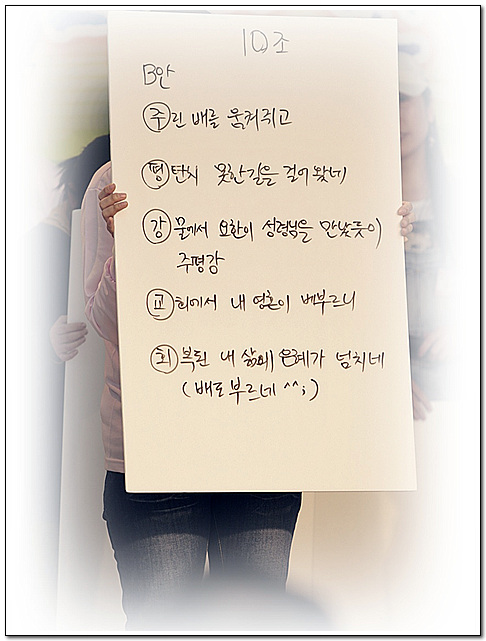 10조
B안
주린 배를 움켜쥐고
평탄치 못한길을 걸어왔네
강물에서 요한이 성령님을 만났듯이
주평강
교회에서 내 영혼이 배부르니
회복된 내 삶의 은혜가 넘치네
(배도 부르네 ^^;)